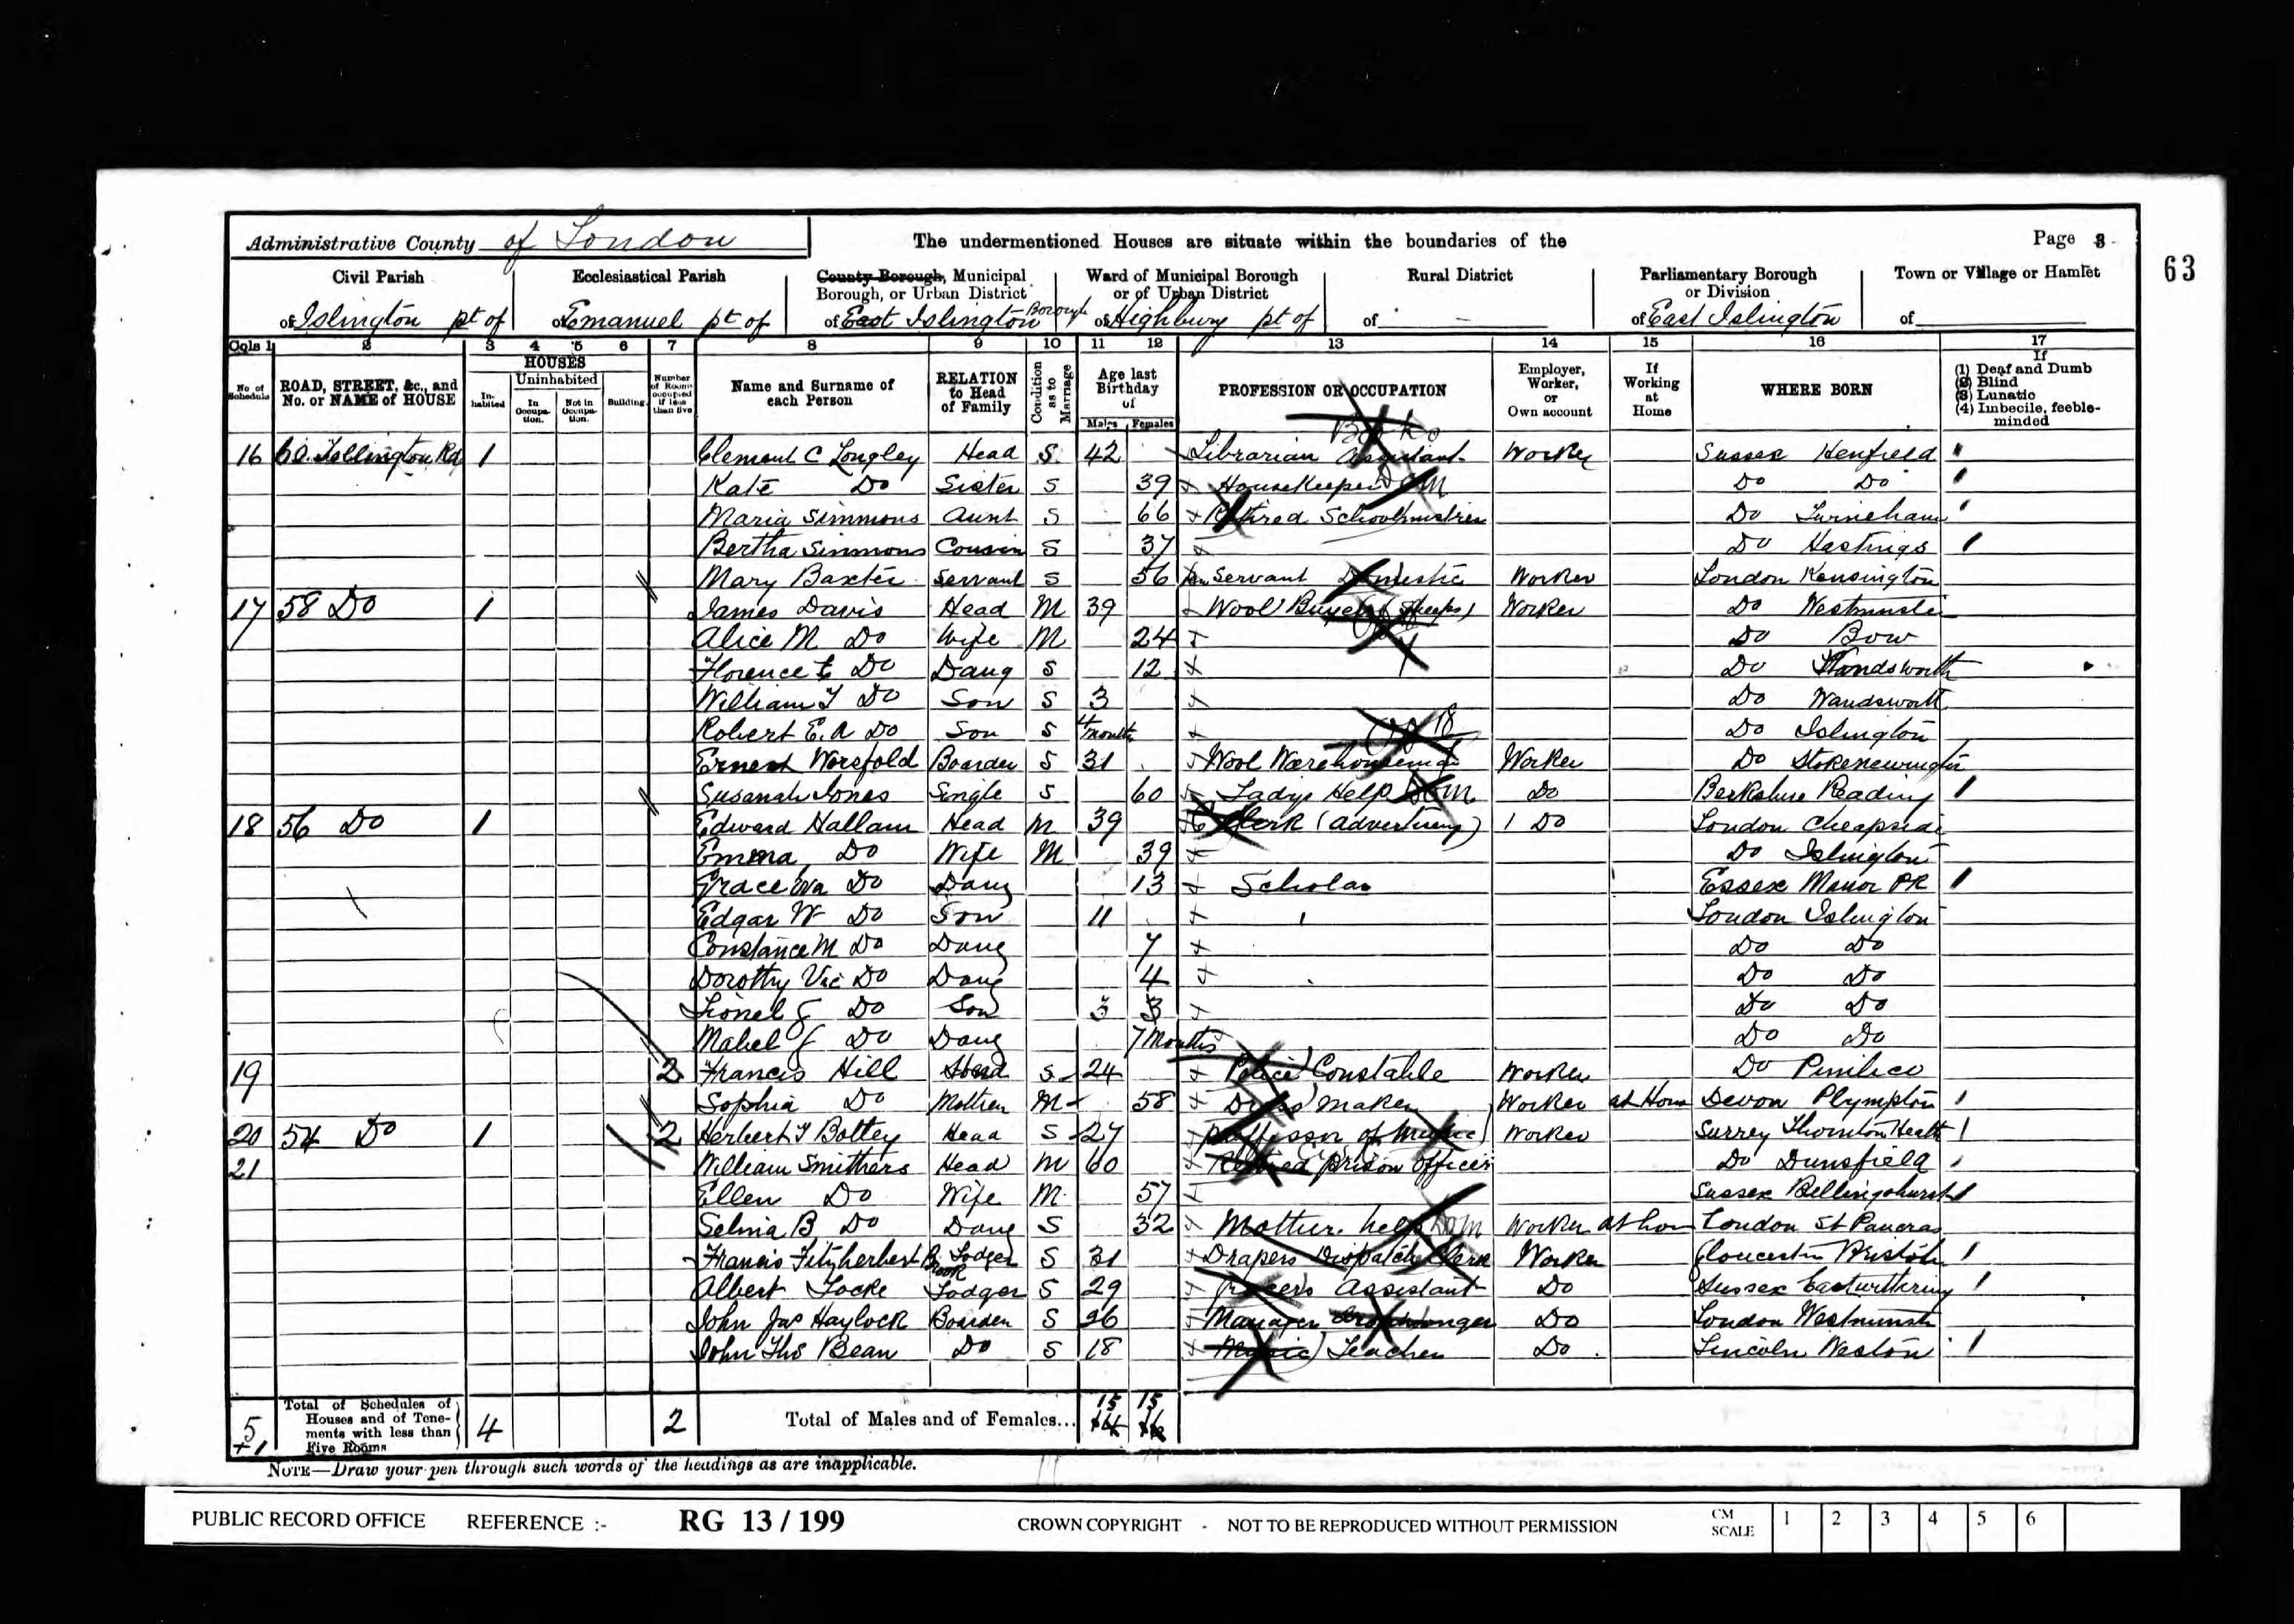 Administrative County of London
The undermentioned Houses are situate within the boundaries of the
Page 3
63
Civil Parish
Ecclesiastical Parish
County Borough, Municipal Borough, or Urban District
Ward of Municipal Borough or of Urban District
Rural District
Parliamentary Borough or Division
Town or Village or Hamlet
of Islington pt of
of Emanuel pt of
of East Islington Borough
of Highbury pt of
of -
of East Islington
of
Cols 1 2 3 4 5 6 7 8 9 10 11 12 13 14 15 16 17
No of Schedule
ROAD, STREET, &c., and No. or NAME of HOUSE
HOUSES
In-habited
Uninhabited
In Occupa-tion.
Not in Occupa-tion.
Building
Number of Rooms occupied if less than five
Name and Surname of each Person
RELATION to Head of Family
Condition as to Marriage
Age last Birthday of
Males Females
PROFESSION OR OCCUPATION
Employer, Worker, or Own account
If Working at Home
WHERE BORN
If
(1) Deaf and Dumb
(2) Blind
(3) Lunatic
(4) Imbecile, feeble-minded
16 60 Tollington Rd 1 Clement C Longley Head S 42 Librarian Assistant Worker Sussex Henfield
Kate Do Sister S 39 Housekeeper Dom Do Do
Maria Simmons Aunt S 66 Retired Schoolmistress Do Twineham
Bertha Simmons Cousin S 37 Do Hastings
Mary Baxter Servant S 56 Servant Domestic Worker London Kensington
17 58 Do 1 James Davis Head M 39 Wool Buyer (Sheeps) Worker Do Westminster
Alice M Do Wife M 24 Do Bow
Florence E Do Daug S 12 Do Wandsworth
William J Do Son S 3 Do Wandsworth
Robert E. A Do Son S 4 months Do Islington
Ernest Worsfold Boarder S 31 Wool Warehouseman Worker Do Stokenewington
Susanah Jones Single S 60 Ladys Help Dom Do Berkshire Reading
18 56 Do 1 Edward Hallam Head M 39 Clerk (advertising) Do London Cheapside
Emma Do Wife M 39 Do Islington
Grace Eva Do Daug 13 Scholar Essex Manor PK
Edgar W Do Son 11 London Islington
Constance M Do Daug 7 Do Do
Dorothy Vic Do Daug 4 Do Do
Lionel G Do Son 3 3 Do Do
Mabel G Do Daug 7 Months Do Do
19 2 Francis Hill Head S 24 Police Constable Worker Do Pimlico
Sophia Do Mother M 58 Dress maker Worker at Home Devon Plympton
20 54 Do 1 2 Herbert J Bottey Head S 27 Professor of Music Worker Surrey Thornton Heath
21 William Smithers Head M 60 Retired prison Officer Do Dunsfield
Ellen Do Wife M 57 Sussex Billingshurst
Selina B Do Daug S 32 Mother. help Dom Worker at hom London St Pancras
Francis Fitzherbert Brook Lodger S 31 Drapers Dispatch Clerk Worker Gloucester Bristol
Albert Locke Lodger S 29 Grocers Assistant Do Sussex Eastwittering
John Jas Haylock Boarder S 26 Manager Do London Westminster
John Ths Bean Do S 18 Music Teacher Do Lincoln Weston
5 +1
Total of Schedules of Houses and of Tene-ments with less than Five Rooms
4 2
Total of Males and of Females...
15 15
NOTE—Draw your pen through such words of the headings as are inapplicable.
PUBLIC RECORD OFFICE REFERENCE :- RG 13 / 199 CROWN COPYRIGHT - NOT TO BE REPRODUCED WITHOUT PERMISSION CM SCALE 1 2 3 4 5 6